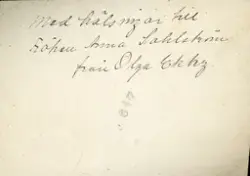 Med hälsningar till
Fröken Anna Dahlström
från Olga Ekby